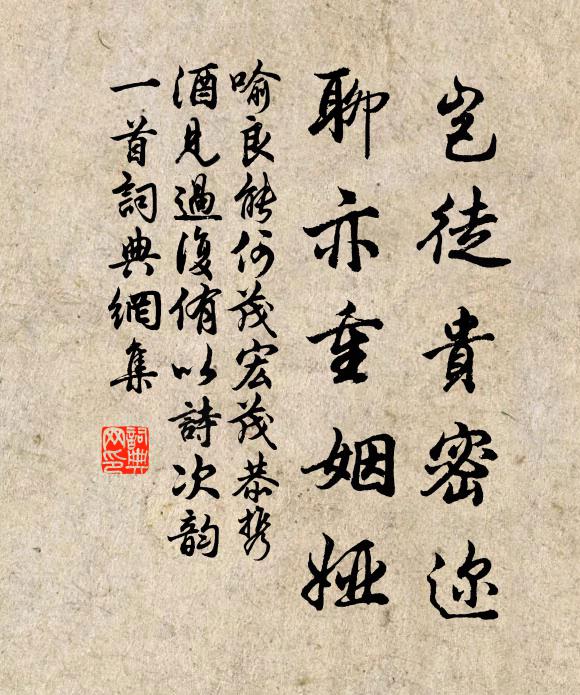 岂徒貴密迩
聊亦重姻婭
喻良能何茂宏茂恭携
酒見過復侑以詩次韵
一首詞典網集
詞典
网印